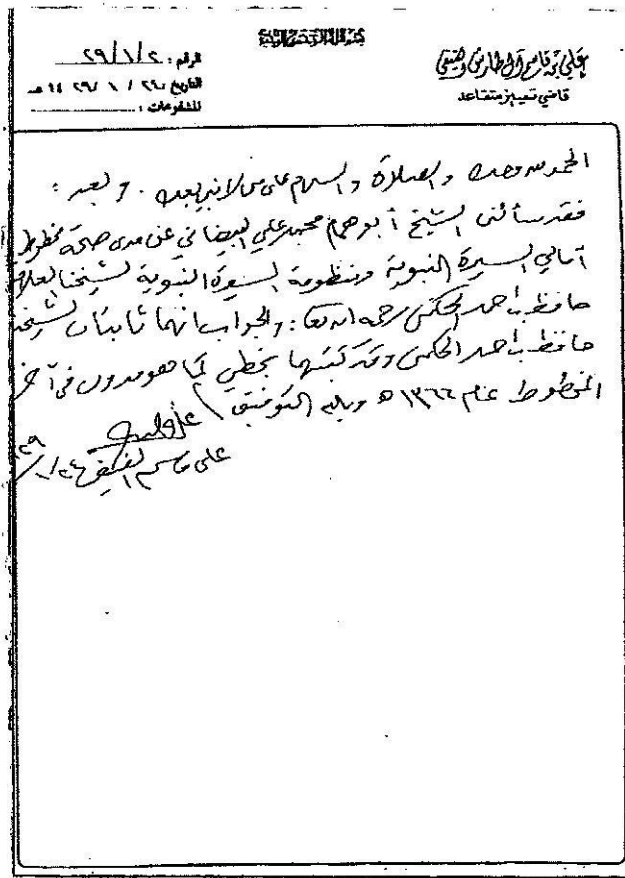 بسم الله الرحمن الرحيم
علي بن قاسم آل طارش الفيفي
قاضي تمييز متقاعد
الرقم: ٢٩/١/٢
التاريخ ٢٤ / ١ / ١٤٢٩ هـ
المشفوعات:
الحمد لله وحده والصلاة والسلام على من لا نبي بعده . وبعد :
فقد سألني الشيخ أبو همام محمد علي البيضاني عن مدى صحة مخطوط
أمالي السيرة النبوية ومنظومة السيرة النبوية لشيخنا العلا
حافظ بن أحمد الحكمي رحمه الله تعا: والجواب انهما ثابتان لشيخنا
حافظ بن أحمد الحكمي وقد كتبتهما بخطي كما هو مدون في آخر
المخطوط عام ١٣٦٦ هـ وبالله التوفيق
علي قاسم الفيفي ٢٤/١/٢٩